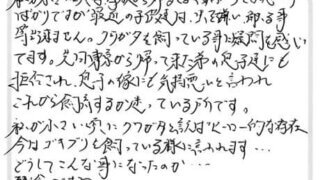 ばかりですが最近の子供達は、
等出ません。クワガタを飼っている事に疑問を感じ
てます。先日東京から帰って来た弟の息子達にも
拒否され、息子の嫁にも気持悪いと言われ
これから飼育するか迷っている所です。
私が小さい頃にクワガタと言えばヒーロー的な存在
今はゴキブリを飼っている様に言われます…
どうしてこんな事になったのか…